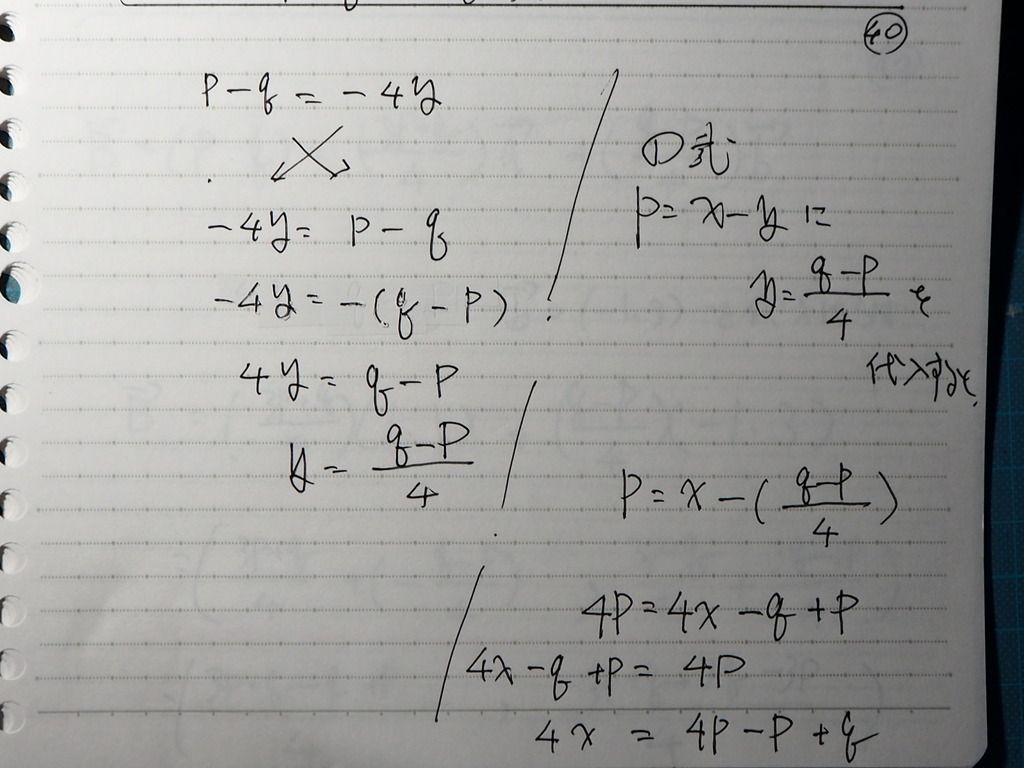 40
P - q = - 4y
- 4y = P - q
- 4y = - (q - P)
4y = q - P
y = (q - P) / 4
①式
P = x - y に
y = (q - P) / 4 を
代入すると
P = x - ((q - P) / 4)
4P = 4x - q + P
4x - q + P = 4P
4x = 4P - P + q